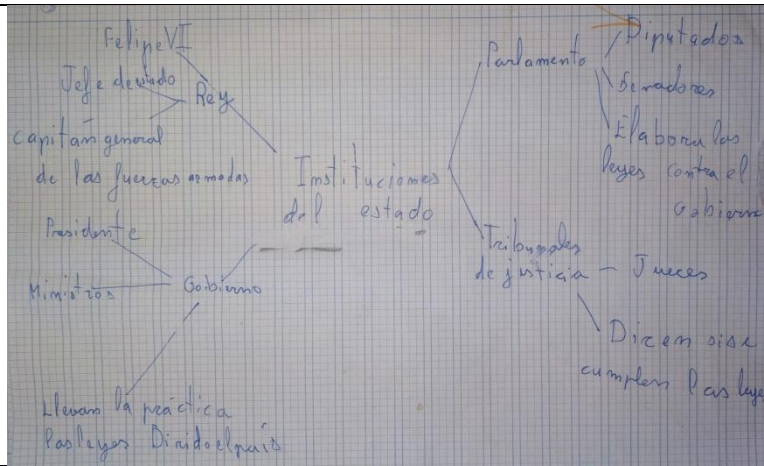 Felipe VI
Jefe de estado
Rey
Capitan general
de las fuerzas armadas
Instituciones
del estado
Presidente
Ministros
Gobierno
Llevan la práctica
las leyes Dirido el país
Parlamento
Diputados
Senadores
Elabora las
leyes contra el
Gobierno
Tribunales
de justicia - Jueces
Dicen si se
cumplen las leye